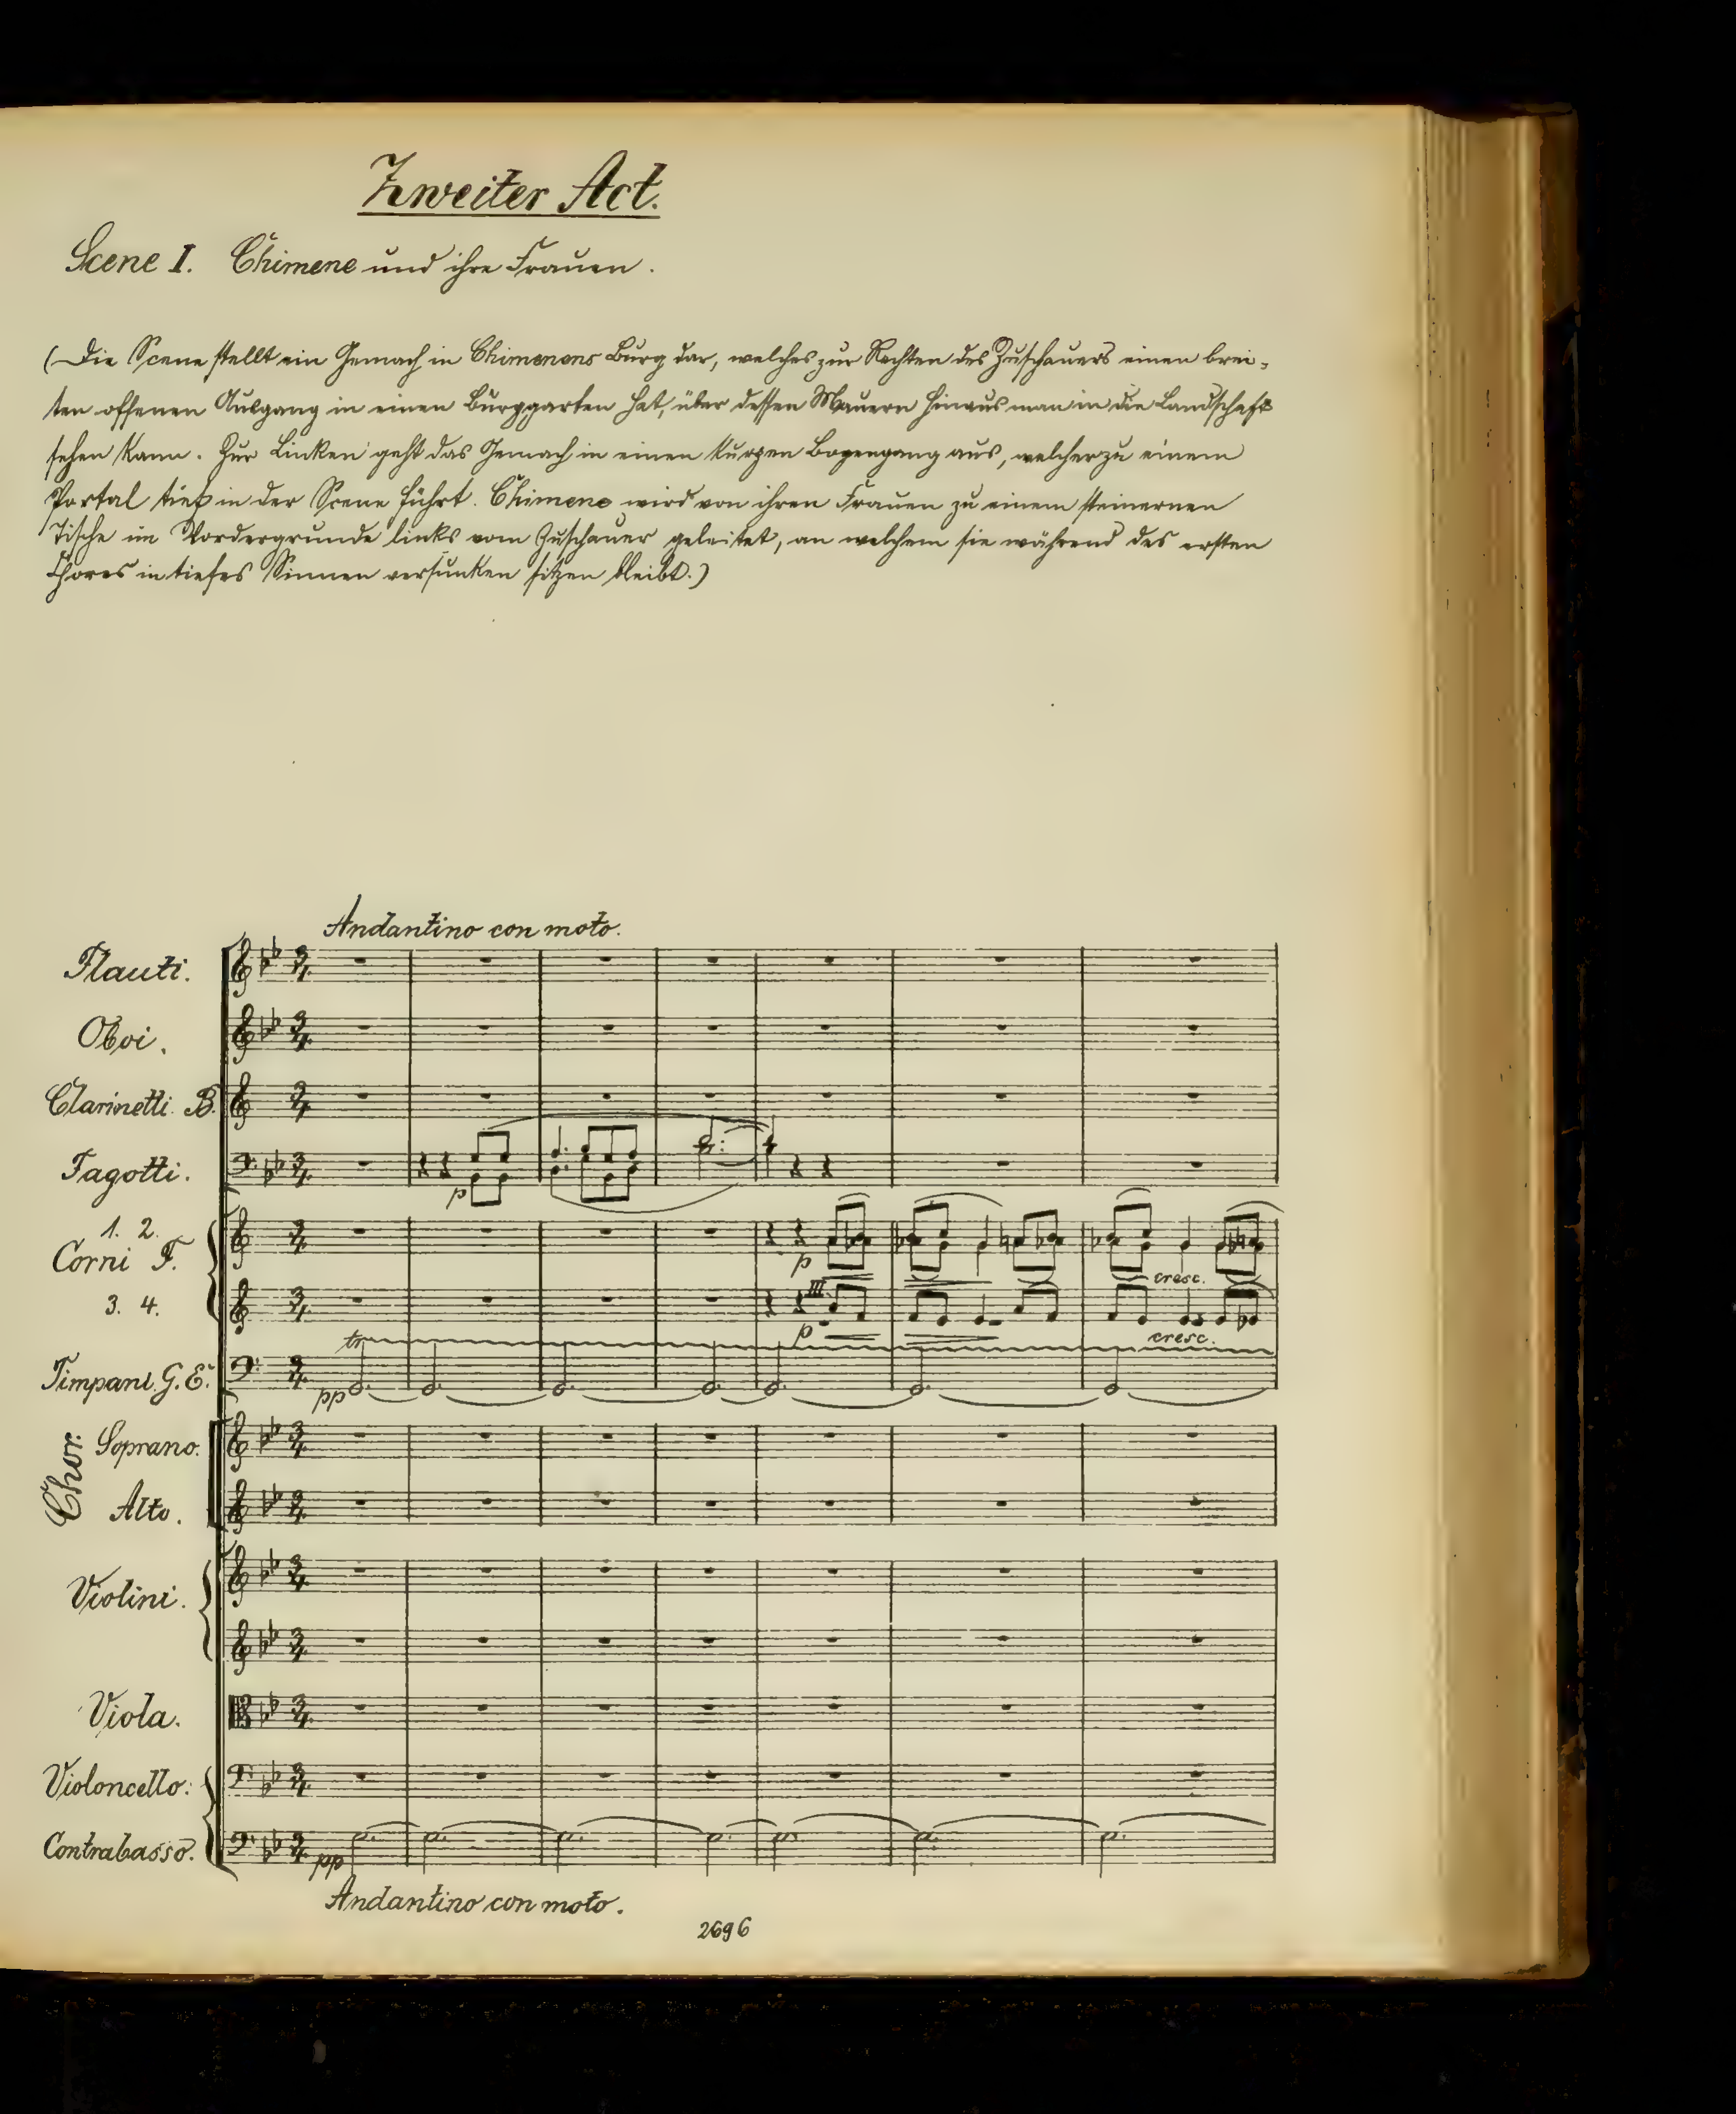 Zweiter Act.
Scene I. Chimene und ihre Frauen.
(Die Scene stellt ein Gemach in Chimenens Burg dar, welches zur Rechten des Zuschauers einen brei-
ten offenen Ausgang in einen Burggarten hat, über dessen Mauern hinaus man in die Landschaft
sehen kann. Zur Linken geht das Gemach in einen kurzen Bogengang aus, welcher zu einem
Portal tief in der Scene führt. Chimene wird von ihren Frauen zu einem steinernen
Tische im Vordergrunde links vom Zuschauer geleitet, an welchem sie während des ersten
Chores in tiefes Sinnen versunken sitzen bleibt.)
Andantino con moto.
Flauti.
Oboi.
Clarinetti. B.
Fagotti.
p
1. 2.
Corni F.
3. 4.
p
cresc.
III.
p
cresc.
tr
Timpani. G. E.
pp
Chor.
Soprano.
Alto.
Violini.
Viola.
Violoncello.
Contrabasso.
pp
Andantino con moto.
2696